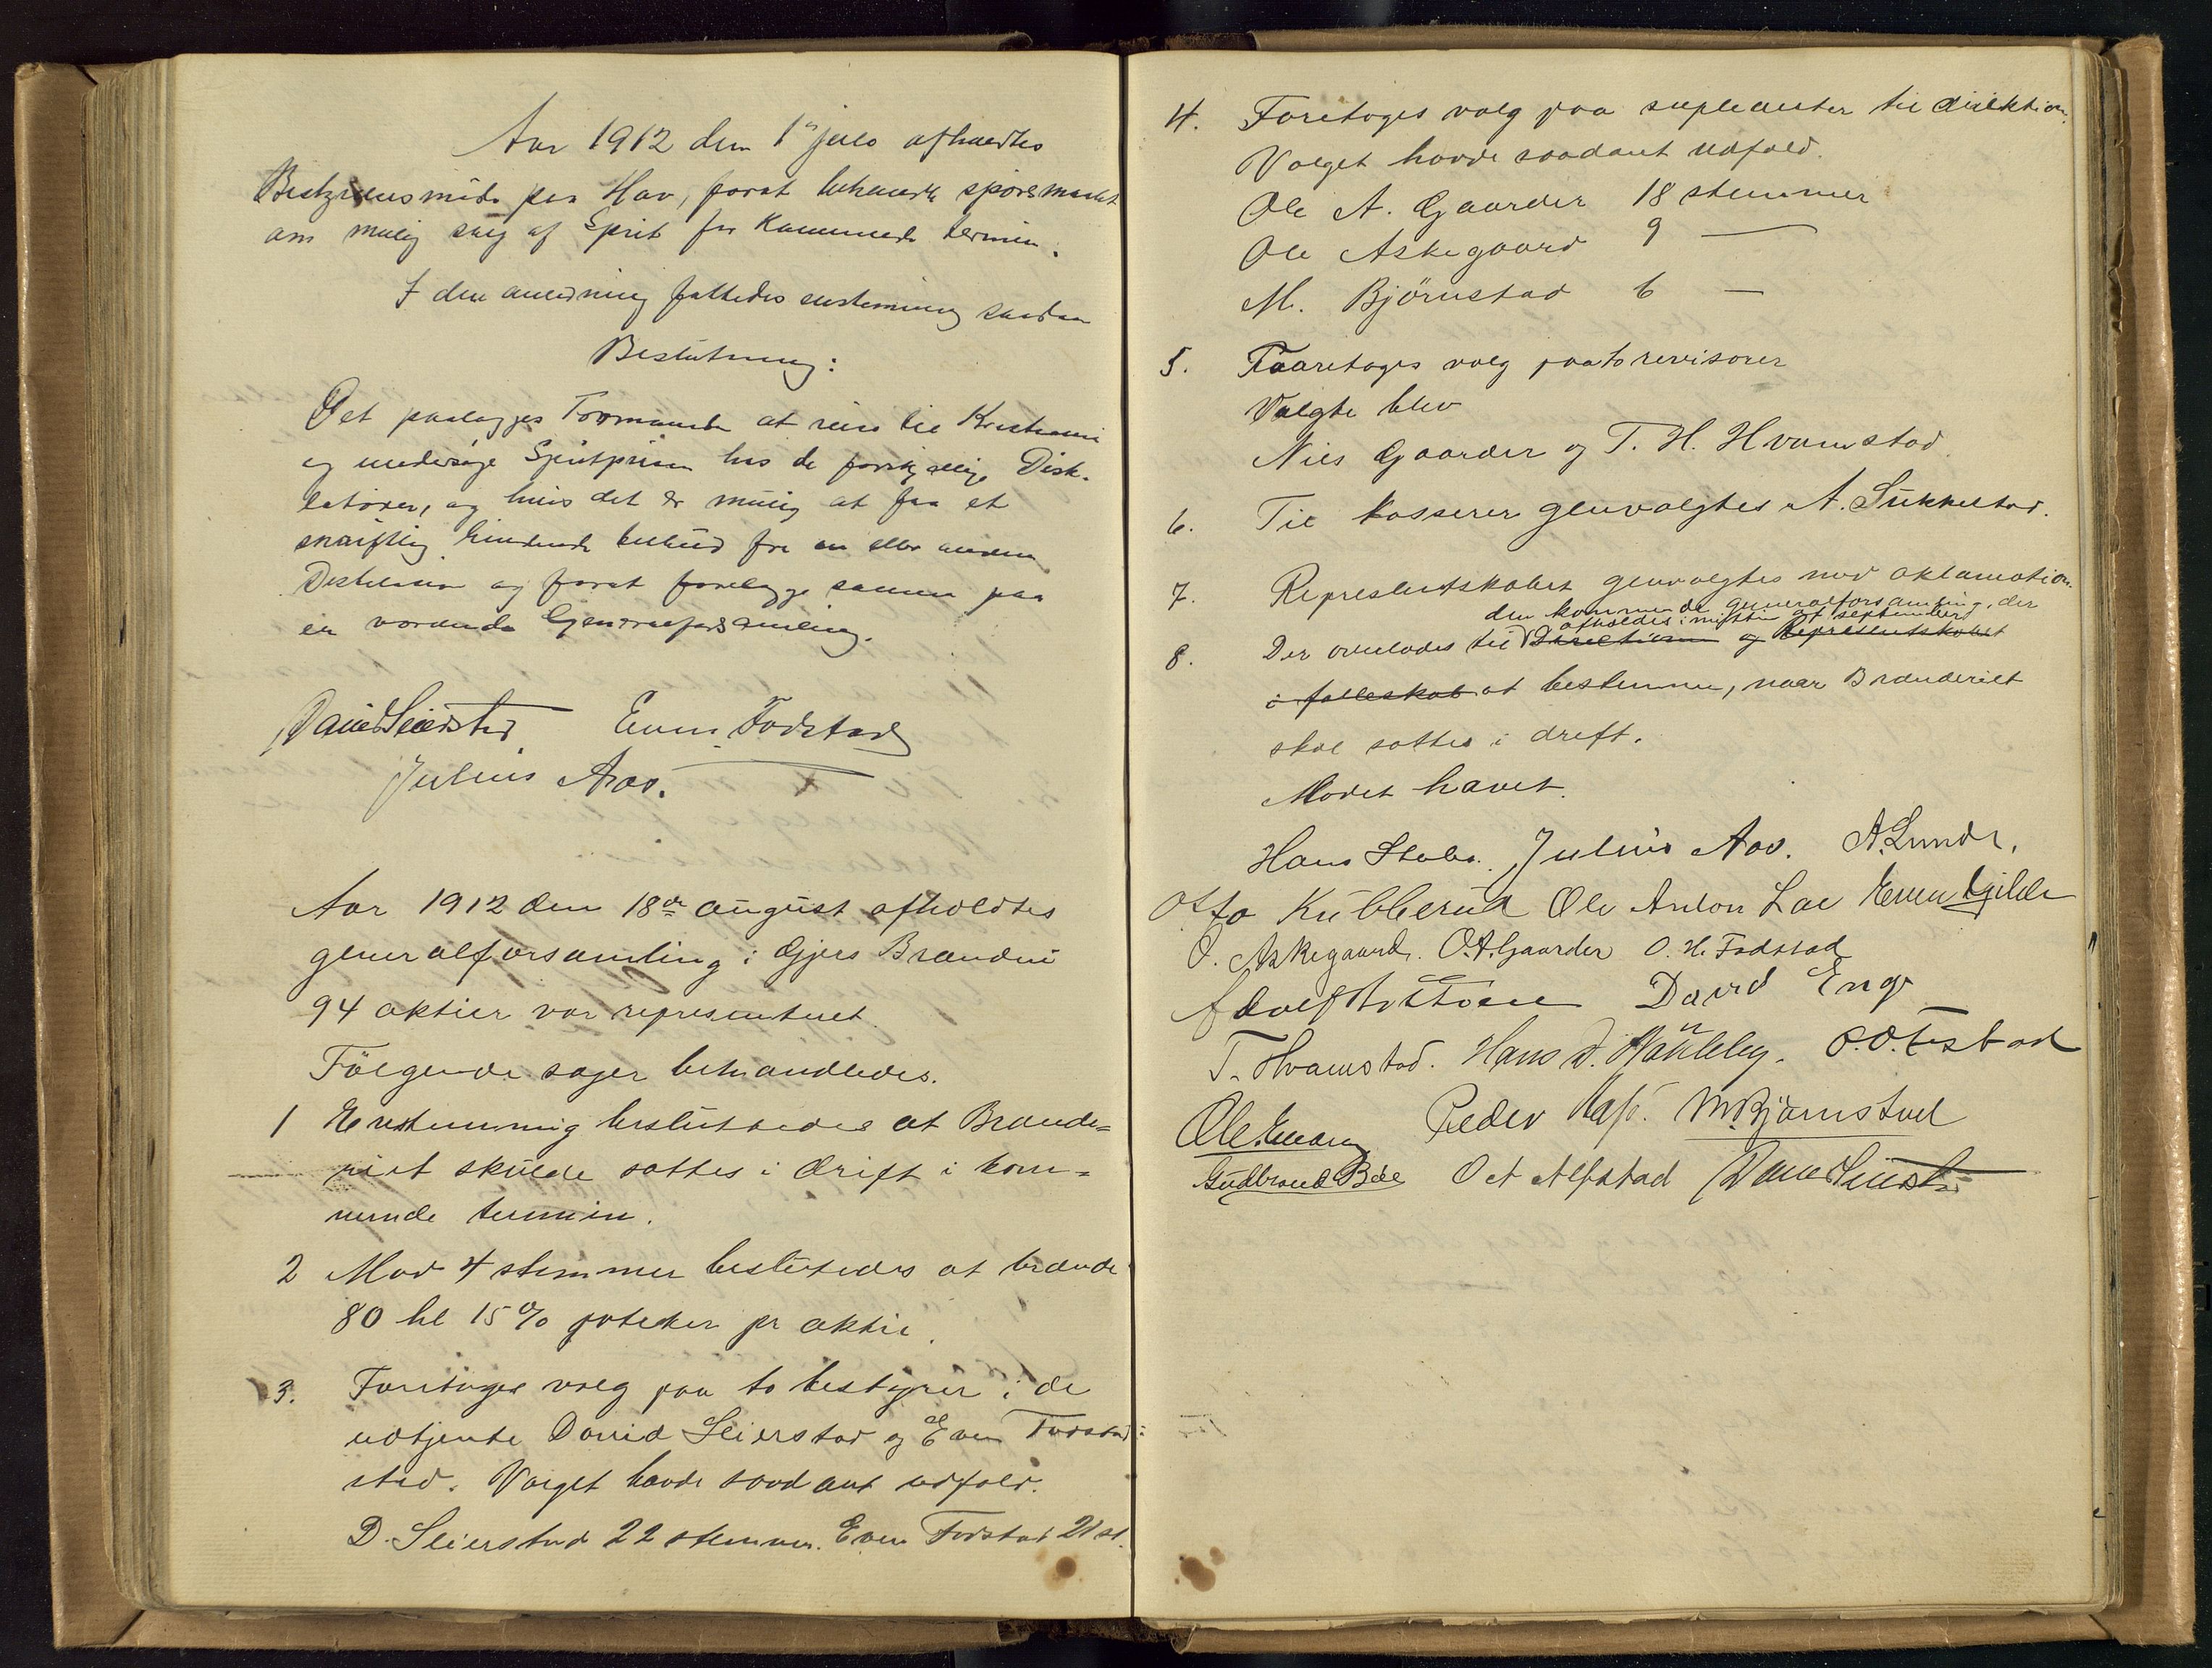 Aar 1912 den 1ste Juli afholdtes
Bestyrelsesmöde paa Hov, forat behandle spörsmaalet
om mulig salg af Sprit for kommende termin.
I den anledning fattedes enstemmig saadan
Beslutning:
Det paalægges Formanden at reise til Kristiania
og undersöge Spritprisen hos de forskjellige Disti-
latörer, og hvis det er mulig at faa et
skriftlig bindende tilbud fra en eller anden
Distilatör og forat forelægge samme paa
en vorende Generalforsamling.
David Seierstad Even Fodstad
Julius Aas.
Aar 1912 den 18de august afholdtes
generalforsamling i Gjers Brænderi
94 aktier var representeret.
Fölgende sager behandledes.
1 Enstemmig besluttedes at Brænde=
riet skulde sættes i drift i kom=
mende termin.
2 Mod 4 stemmer beslutedes at brænde
80 hl 15% poteter pr aktie.
3. Foretoges valg paa to bestyrer i de
udtjente David Seierstad og Even Fodstad
sted. Valget havde saadant udfald.
D. Seierstad 22 stemmer. Even Fodstad 21 st.
4. Foretoges valg paa supleanter til direktion.
Valget havde saadant udfald.
Ole A. Gaarder 18 stemmer
Ole Askegaard 9 —
M. Björnstad 6 —
5. Foaretoges valg paa to revisorer
Valgte blev
Nils Gaarder og T. H. Hvamstad.
6. Til kasserer genvalgtes A. Sukkestad.
7. Represeentskabet genvalgtes med aklamation.
den kommende generalforsamling, der
afholdes i midten af september
8. Der overlodes til Direktionen og Represeentskabet
i fælleskab at bestemme, naar Brænderiet
skal sættes i drift.
Mödet hævet.
Hans Stabo. Julius Aas. A. Lunde.
Otto Kubberud Ole Anton Lae Even Gilde
O. Askegaard. O.A. Gaarder O. H. Fodstad
Adolf David Eng
T. Hvamstad. Hans D. O.O. Tostad
Ole Peder M. Bjørnstad
Gudbrand Bøe O A Alfstad David Seierstad